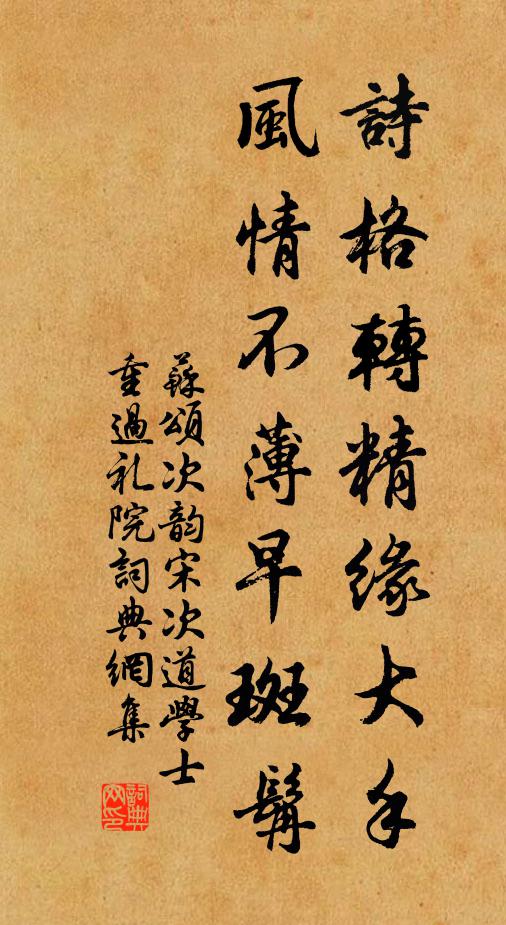 詩格轉精緣大手
風情不薄早斑鬢
蘇頌次韵宋次道學士
重過礼院詞典網集
詞典網印